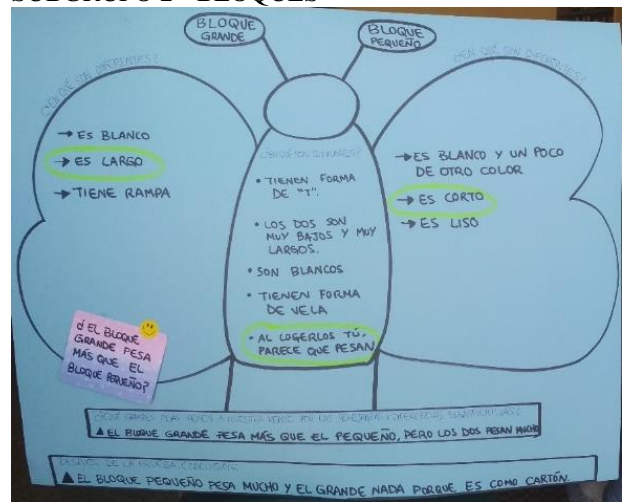 SUBGRUPO 2 - BLOQUES
BLOQUE
GRANDE
BLOQUE
PEQUEÑO
¿EN QUÉ SON DIFERENTES?
→ ES BLANCO
→ ES LARGO
→ TIENE RAMPA
¿EN QUÉ SON SIMILARES?
• TIENEN FORMA
DE "T".
• LOS DOS SON
MUY BAJOS Y MUY
LARGOS.
• SON BLANCOS
• TIENEN FORMA
DE VELA
• AL COGERLOS TÚ,
PARECE QUE PESAN
¿EN QUÉ SON DIFERENTES?
→ ES BLANCO Y UN POCO
DE OTRO COLOR
→ ES CORTO
→ ES LISO
¿EL BLOQUE
GRANDE PESA
MÁS QUE EL
BLOQUE PEQUEÑO?
▲ EL BLOQUE GRANDE PESA MÁS QUE EL PEQUEÑO, PERO LOS DOS PESAN MUCHO
DESPUÉS DE LA PRUEBA, CONCLUSIÓN:
▲ EL BLOQUE PEQUEÑO PESA MUCHO Y EL GRANDE NADA PORQUE ES COMO CARTÓN.